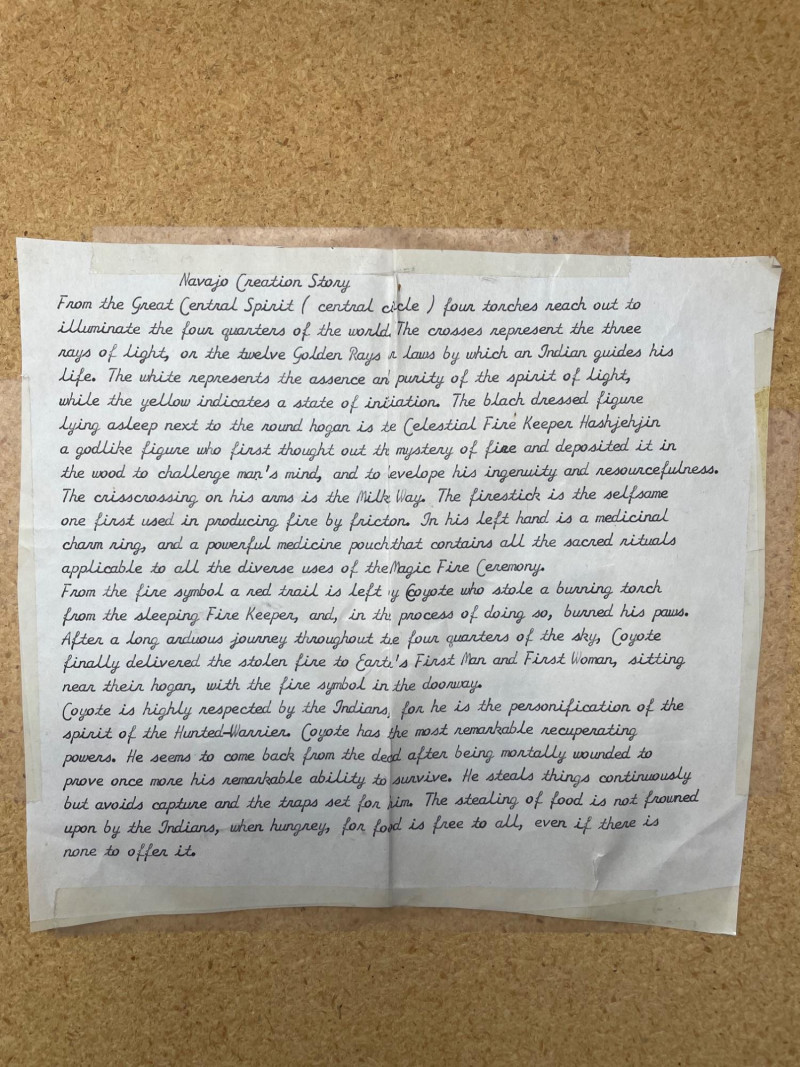 Navajo Creation Story
From the Great Central Spirit ( central cicle ) four torches reach out to
illuminate the four quarters of the world. The crosses represent the three
rays of light, or the twelve Golden Rays r laws by which an Indian guides his
life. The white represents the assence an purity of the spirit of light,
while the yellow indicates a state of initiation. The blach dressed figure
lying asleep next to the round hogan is te Celestial Fire Keeper Hashjehjin
a godlike figure who first thought out th mystery of fire and deposited it in
the wood to challenge man's mind, and to evelope his ingenuity and resourcefulness.
The crisscrossing on his arms is the Milk Way. The firestick is the selfsame
one first used in producing fire by fricton. In his left hand is a medicinal
charm ring, and a powerful medicine pouch that contains all the sacred rituals
applicable to all the diverse uses of the Magic Fire Ceremony.
From the fire symbol a red trail is left y Coyote who stole a burning torch
from the sleeping Fire Keeper, and, in th process of doing so, burned his paws.
After a long arduous journey throughout te four quarters of the sky, Coyote
finally delivered the stolen fire to Eart's First Man and First Woman, sitting
near their hogan, with the fire symbol in the doorway.
Coyote is highly respected by the Indians, for he is the personification of the
spirit of the Hunted-Warrier. Coyote has the most remarkable recuperating
powers. He seems to come back from the dead after being mortally wounded to
prove once more his remarkable ability to survive. He steals things continuously
but avoids capture and the traps set for him. The stealing of food is not frowned
upon by the Indians, when hungrey, for food is free to all, even if there is
none to offer it.